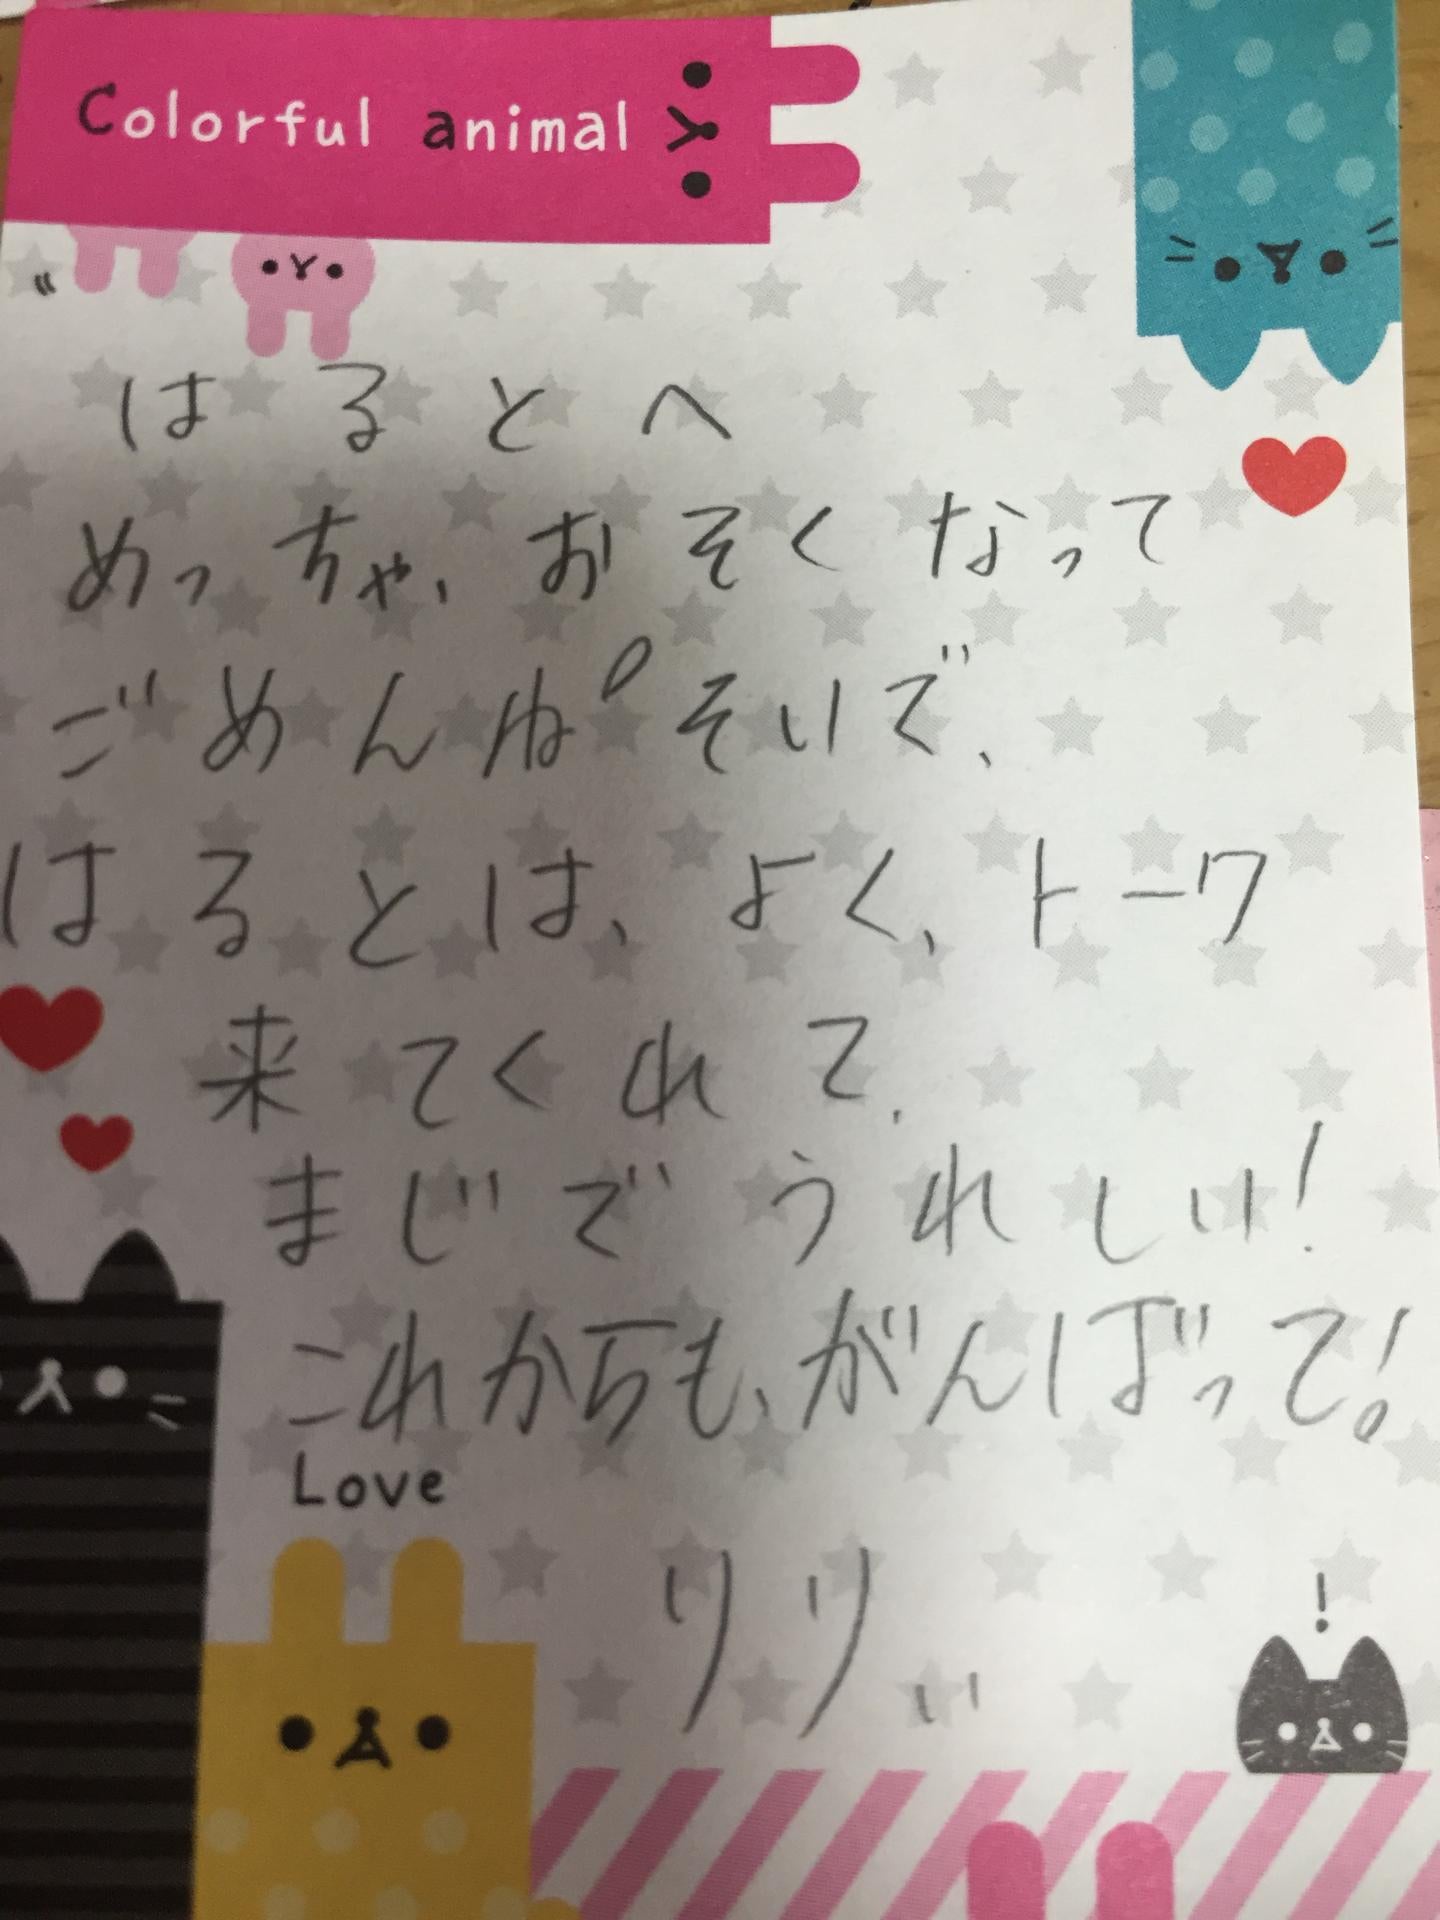 Colorful animal
はるとへ
めっちゃ、おそくなって
ごめんね。そいで、
はるとは、よく、トーク
来てくれて、
まじでうれしい!
これからも、がんばって!
Love
りりぃ
!